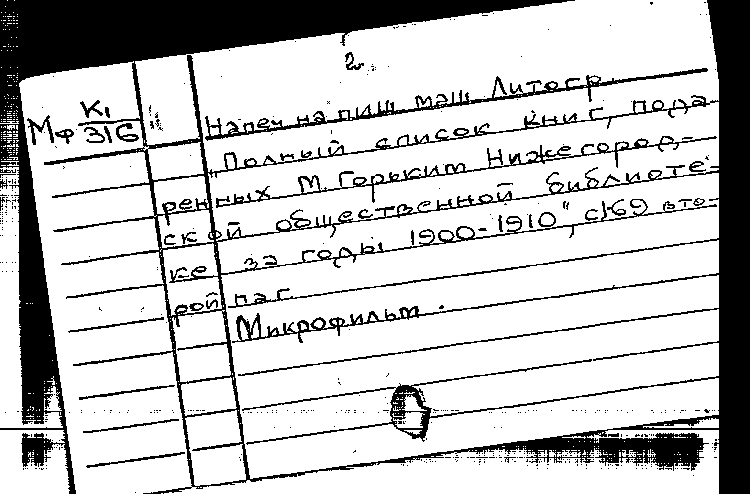 2
Мф К1/316 Напеч на пиш маш Литогр.
„Полный список книг, пода-
ренных М. Горьким Нижегород-
ской общественной библиоте-
ке за годы 1900-1910", с1-69 вто-
рой паг
Микрофильм.